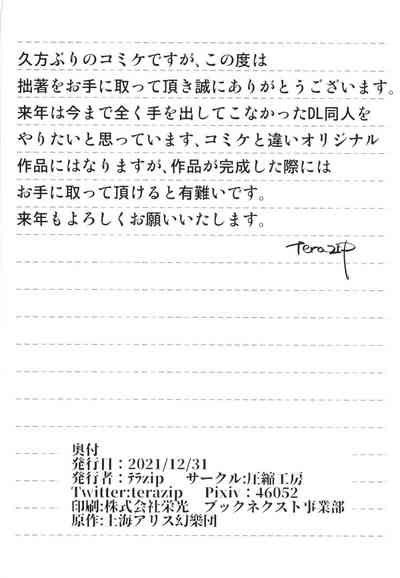 久方ぶりのコミケですが、この度は
拙著をお手に取って頂き誠にありがとうございます。
来年は今まで全く手を出してこなかったDL同人を
やりたいと思っています、コミケと違いオリジナル
作品にはなりますが、作品が完成した際には
お手に取って頂けると有難いです。
来年もよろしくお願いいたします。
Terazip
奥付
発行日：2021/12/31
発行者：ﾃﾗzip サークル:圧縮工房
Twitter:terazip Pixiv：46052
印刷:株式会社栄光 ブックネクスト事業部
原作:上海アリス幻樂団